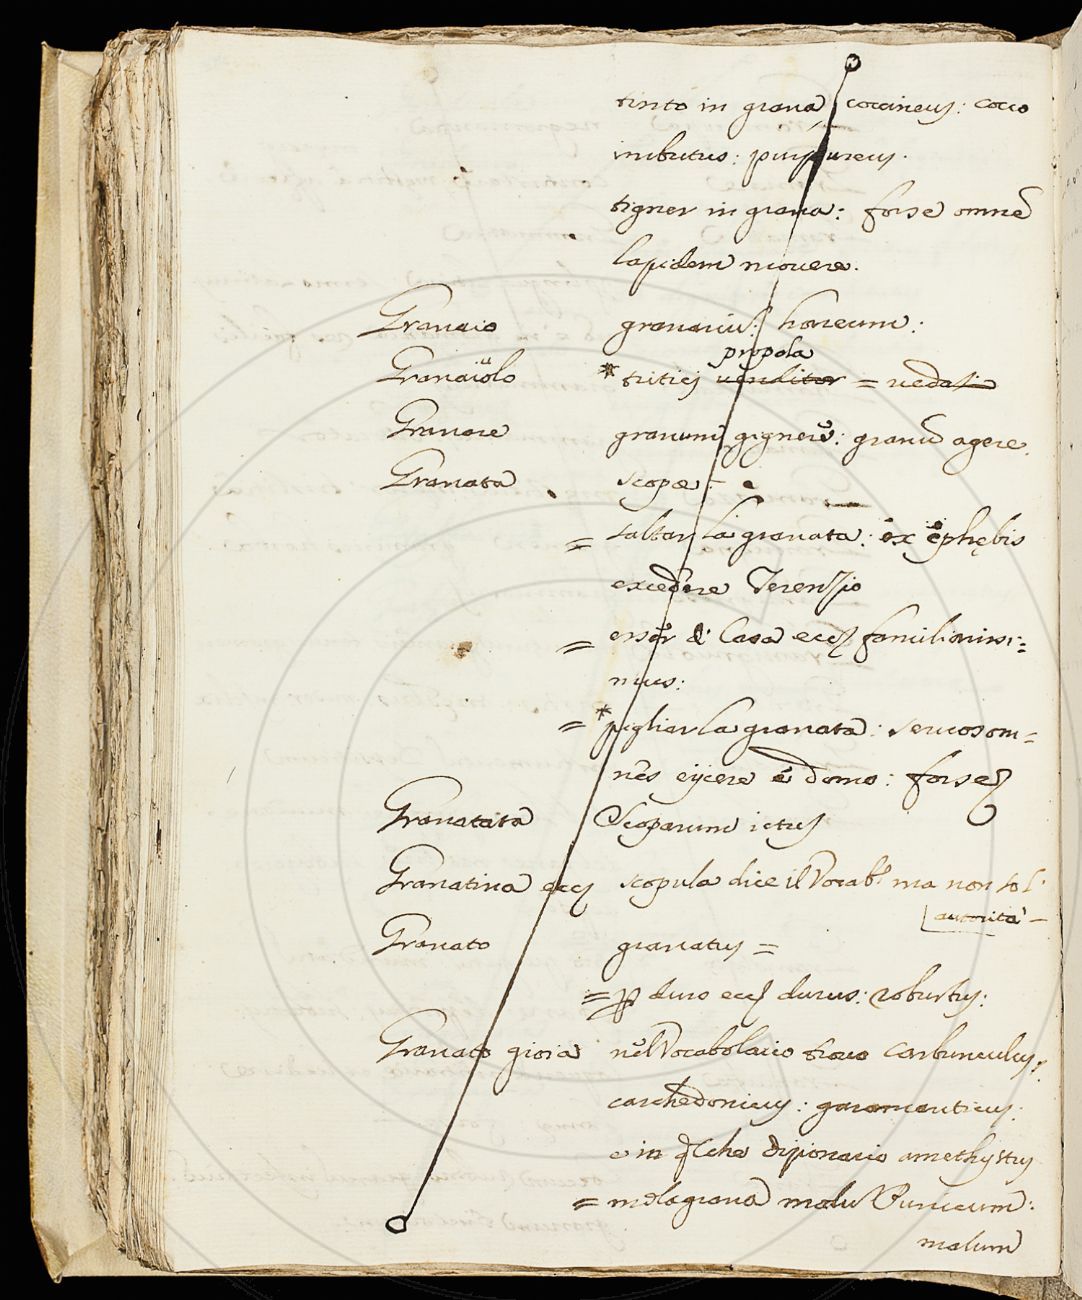 tinto in grana, coccineus: cocco
imbutus: purpureus.
tigner in grana: forse omnē
lapidem movere.
Granaio granarius: horreum:
propola
Granaiölo * triticj venditor = vedasi
Granare granum gignere: granū agere.
Granata scopæ -
= saltar la granata: ex ephębis
excedere Terenzio
= esser di Casa ecc. familiarissi=
mus:
= * pigliar la granata: servos om=
nes eijcere è domo: forse
Granatata Scoparum ictus
Granatina ecc. scopula dice il Vocab.º ma non sol.
autorità -
Granato granatus =
= ꝑ duro ecc. durus: robustus:
Granato gioia nel Vocabolario trovo carbunculus:
carchedonicus: garamanticus:
e in qlche dizionario amethystus
= melagrana malū Punicum:
malum